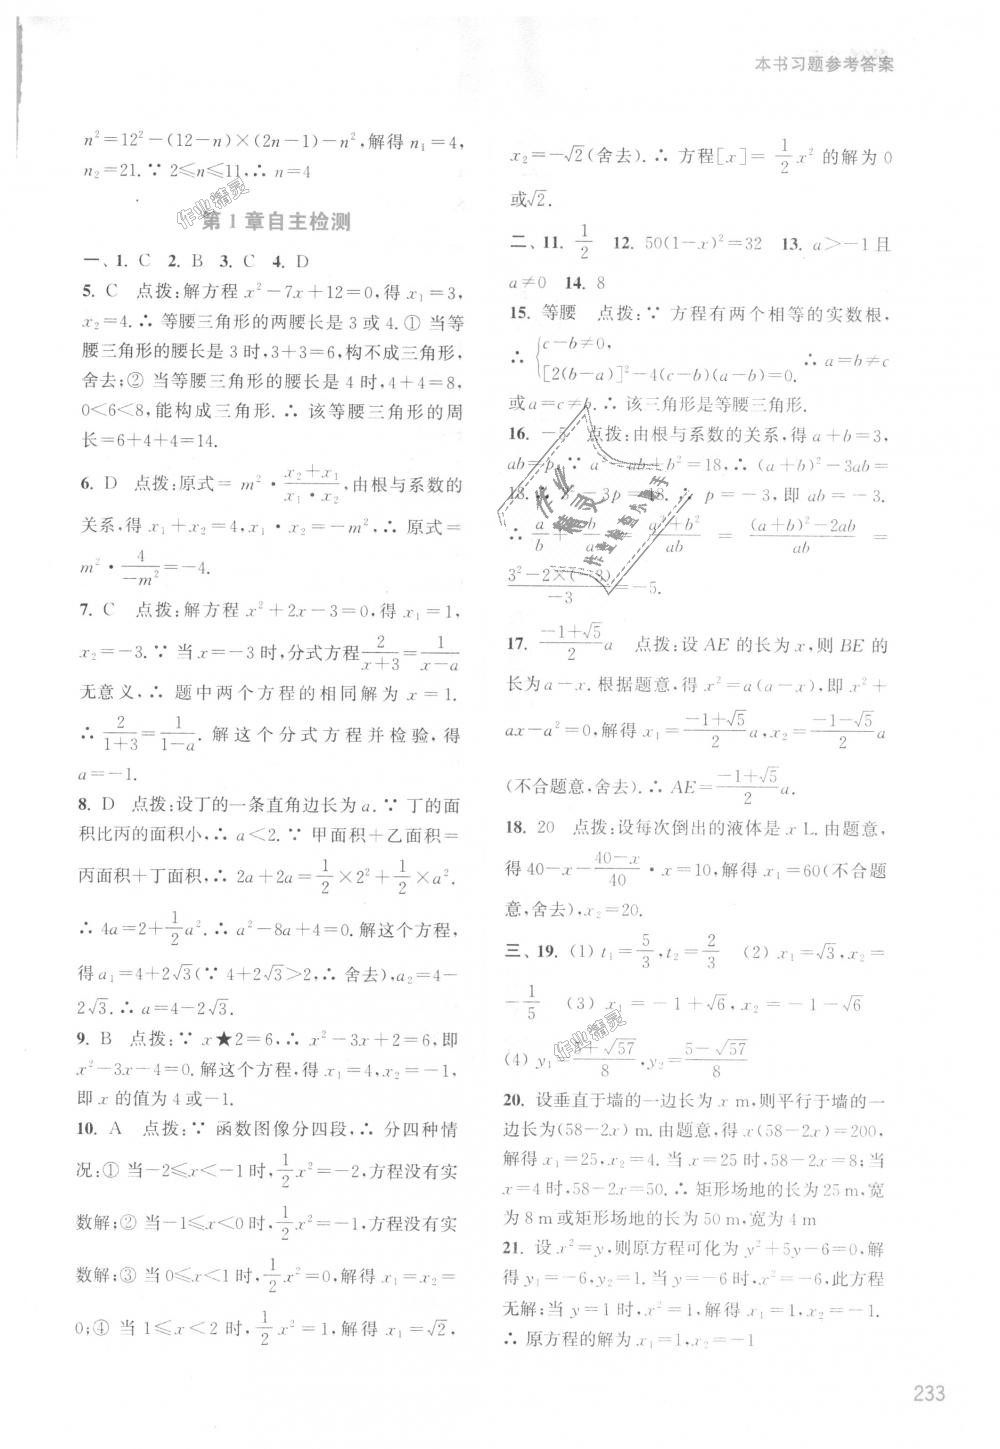 本书习题参考答案
n²=12²-(12-n)×(2n-1)-n²,解得 n₁=4,
n₂=21.∵ 2≤n≤11,∴ n=4
第 1 章自主检测
一、1. C 2. B 3. C 4. D
5. C 点拨:解方程 x²-7x+12=0,得 x₁=3,
x₂=4.∴ 等腰三角形的两腰长是 3 或 4.① 当等
腰三角形的腰长是 3 时,3+3=6,构不成三角形,
舍去;② 当等腰三角形的腰长是 4 时,4+4=8,
0<6<8,能构成三角形.∴ 该等腰三角形的周
长=6+4+4=14.
6. D 点拨:原式= m²·(x₂+x₁)/(x₁·x₂),由根与系数的
关系,得 x₁+x₂=4,x₁·x₂=-m²,∴ 原式=
m²·4/(-m²)=4.
7. C 点拨:解方程 x²+2x-3=0,得 x₁=1,
x₂=-3.∵ 当 x=-3 时,分式方程 2/(x+3)=1/(x-a)
无意义,∴ 题中两个方程的相同解为 x=1.
∴ 2/(1+3)=1/(1-a). 解这个分式方程并检验,得
a=-1.
8. D 点拨:设丁的一条直角边长为 a.∵ 丁的面
积比丙的面积小,∴ a<2.∵ 甲面积+乙面积=
丙面积+丁面积,∴ 2a+2a=1/2×2²+1/2×a².
∴ 4a=2+1/2a².∴ a²-8a+4=0.解这个方程,
得 a₁=4+2√3(∵ 4+2√3>2,舍去),a₂=4-
2√3.∴ a=4-2√3.
9. B 点拨:∵ x★2=6,∴ x²-3x+2=6,即
x²-3x-4=0.解这个方程,得 x₁=4,x₂=-1,
即 x 的值为 4 或-1.
10. A 点拨:∵ 函数图像分四段,∴ 分四种情
况:① 当-2≤x<-1 时,1/2x²=-2,方程没有实
数解;② 当-1≤x<0 时,1/2x²=-1,方程没有实
数解;③ 当 0≤x<1 时,1/2x²=0,解得 x₁=x₂=
0;④ 当 1≤x<2 时,1/2x²=1,解得 x₁=√2,
x₂=-√2(舍去).∴ 方程[x]=1/2x² 的解为 0
或√2.
二、11. 1/2 12. 50(1-x)²=32 13. a>-1 且
a≠0 14. 8
15. 等腰 点拨:∵ 方程有两个相等的实数根,
∴ {c-b≠0, [2(b-a)]²-4(c-b)(a-b)=0. ∴ a=b≠c
或 a=c≠b.∴ 该三角形是等腰三角形.
16. -5 点拨:由根与系数的关系,得 a+b=3,
ab=p.∵ a²-ab+b²=18,∴ (a+b)²-3ab=
18.∴ 3²-3p=18.∴ p=-3,即 ab=-3.
∴ a/b+b/a=(a²+b²)/ab=((a+b)²-2ab)/ab=
(3²-2×(-3))/(-3)=-5.
17. (-1+√5)/2 a 点拨:设 AE 的长为 x,则 BE 的
长为 a-x.根据题意,得 x²=a(a-x),即 x²+
ax-a²=0,解得 x₁=(-1+√5)/2 a,x₂=(-1-√5)/2 a
(不合题意,舍去).∴ AE=(-1+√5)/2 a.
18. 20 点拨:设每次倒出的液体是 x L.由题意,
得 40-x-(40-x)/40·x=10,解得 x₁=60(不合题
意,舍去),x₂=20.
三、19. (1) t₁=5/3,t₂=2/3 (2) x₁=√3,x₂=
-1/5 (3) x₁=-1+√6,x₂=-1-√6
(4) y₁=(5+√57)/8,y₂=(5-√57)/8
20. 设垂直于墙的一边长为 x m,则平行于墙的一
边长为(58-2x) m.由题意,得 x(58-2x)=200,
解得 x₁=25,x₂=4.当 x=25 时,58-2x=8;当
x=4 时,58-2x=50.∴ 矩形场地的长为 25 m,宽
为 8 m 或矩形场地的长为 50 m,宽为 4 m
21. 设 x²=y,则原方程可化为 y²+5y-6=0,解
得 y₁=-6,y₂=1.当 y=-6 时,x²=-6,此方程
无解;当 y=1 时,x²=1,解得 x₁=1,x₂=-1.
∴ 原方程的解为 x₁=1,x₂=-1
233
作业精灵
作业精灵
作业精灵
作业检查小助手